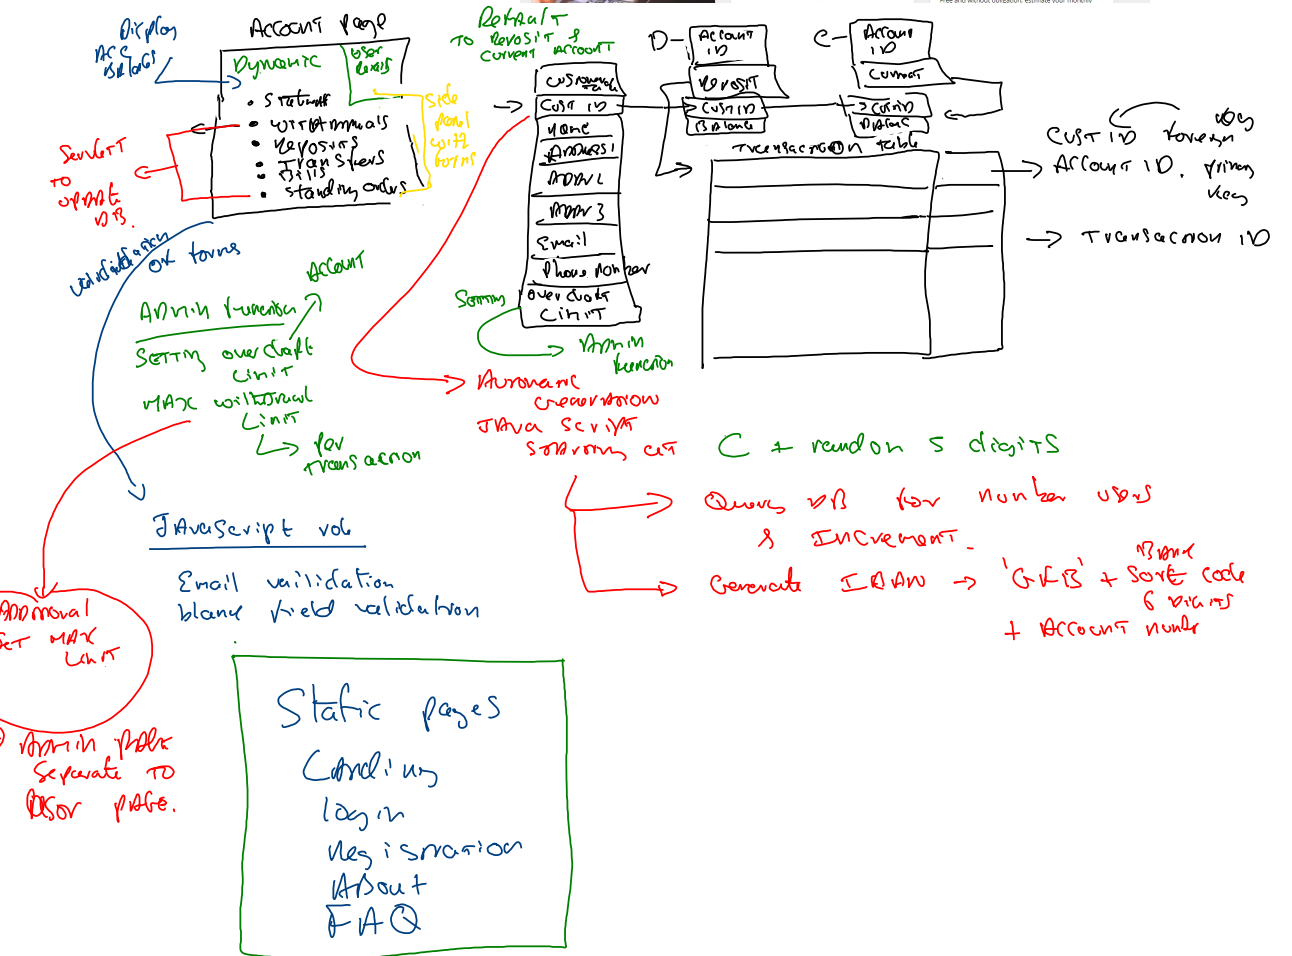 Account page
Display
ACC
Dynamic
User
Details
Withdrawals
Deposits
Transfers
Bills
Standing orders
Side
panel
with
forms
Servlet
TO
UPDATE
DB.
validation
OK forms
Admin function
Account
Setting overdraft
Limit
MAX withdrawal
Limit
per
transaction
JAvascript vob
Email vailidation
blank field validation
MAX
Limit
Admin page
Separate TO
User PAGE.
Static pages
Landing
login
Registration
About
FAQ
Default
TO Deposit &
Current Account
CUST ID
Name
Address1
ADDR 2
ADDR 3
Email
Phone Number
overdraft
Limit
Setting
Admin
function
Automatic
Generation
JAva Script
Starting at
D - Account
ID
Deposit
CUST ID
Balance
C - Account
ID
Current
CustID
Balance
Transaction table
key
CUST ID foreign
Account ID. primary
key
Transaction ID
C + random 5 digits
Query DB for number users
& Increment.
Generate IBAN → 'GFB' + Sort code
Bank
6 Digits
+ Account number